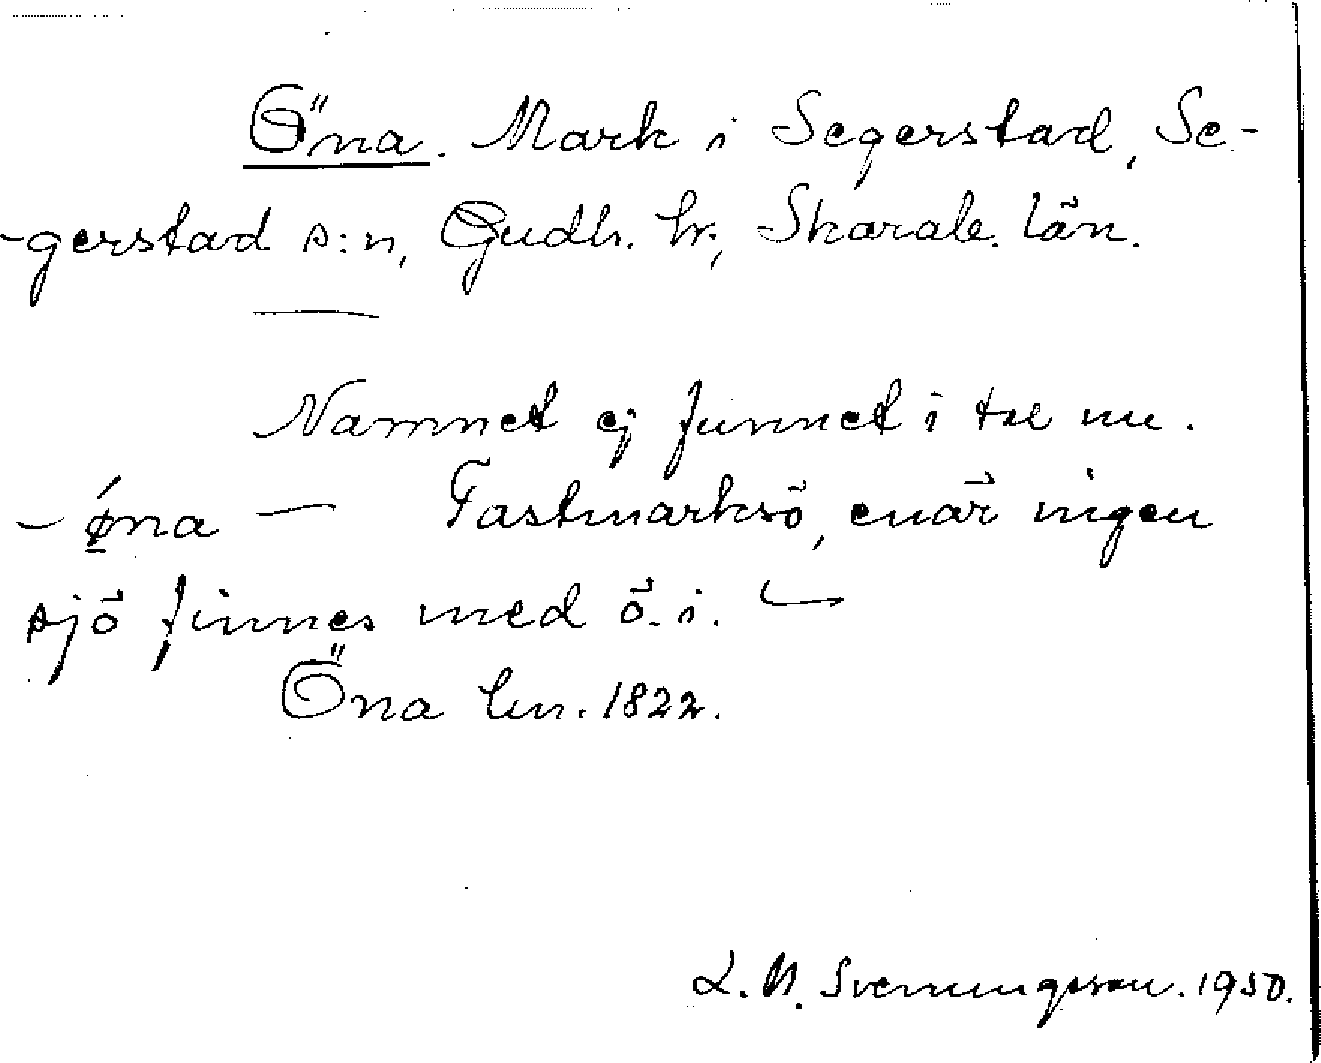 Öna. Mark i Segerstad, Se-
-gerstad s:n, Gudh. hr, Skarab. län.
Namnet ej funnet i tal nu.
– ǿna – Fastmarksö, enär ingen
sjö finnes med ö. i.
Öna hm. 1822.
L. N. Svenungsson. 1950.